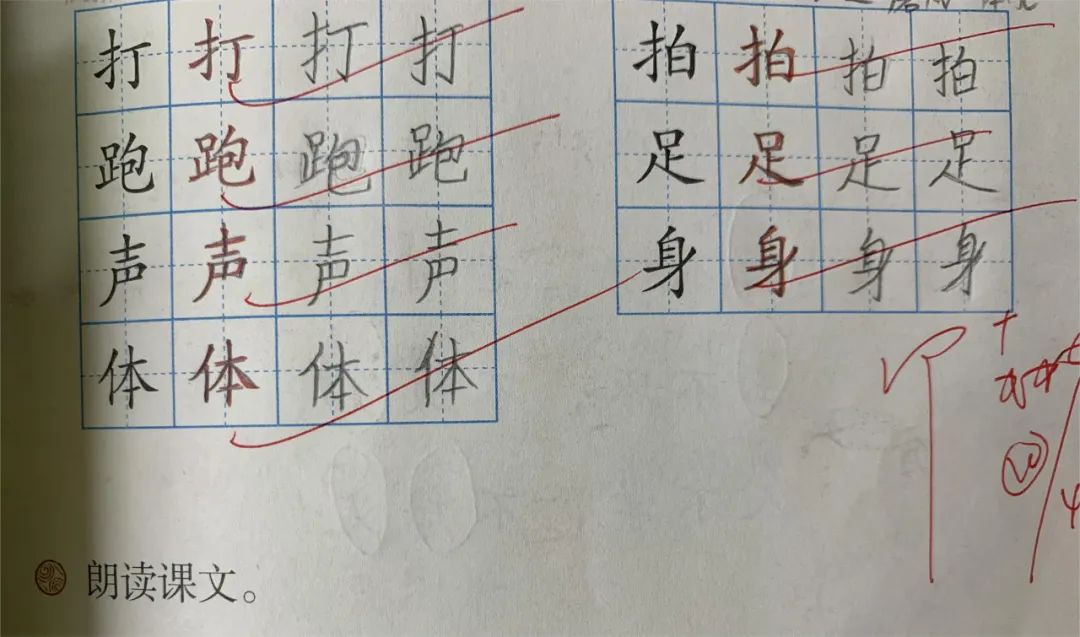 打 打 打 打
跑 跑 跑 跑
声 声 声 声
体 体 体 体
拍 拍 拍 拍
足 足 足 足
身 身 身 身
朗读课文。